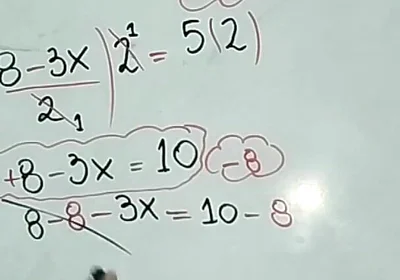 8-3x/2 ) 2 1 = 5(2)
1
+8-3x = 10 (-8)
8-8-3x = 10-8